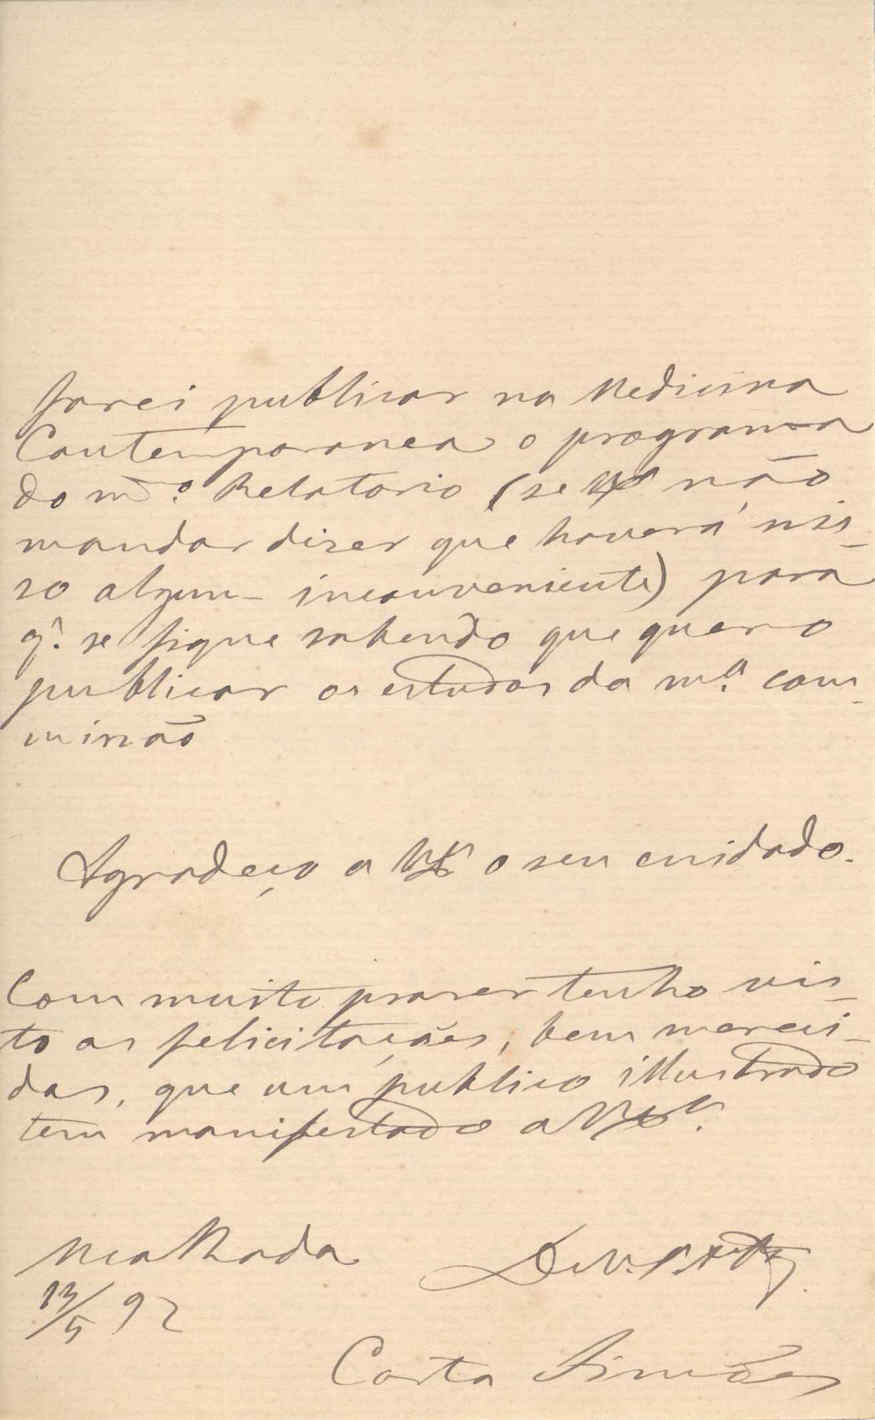 farei publicar na Medicina
Contemporanea o programma
do m.º Relatorio (se não
mandar dizer que haverá nis-
so algum inconveniente) para
q. se fique sabendo que quero
publicar os estudos da m.ª com-
missão
Agradeço a o seu cuidado.
Com muito prazer tenho vis-
to as felicitações, bem mereci-
das, que um publico illustrado
tem manifestado a
Mealhada
13/5 92
Costa Simões